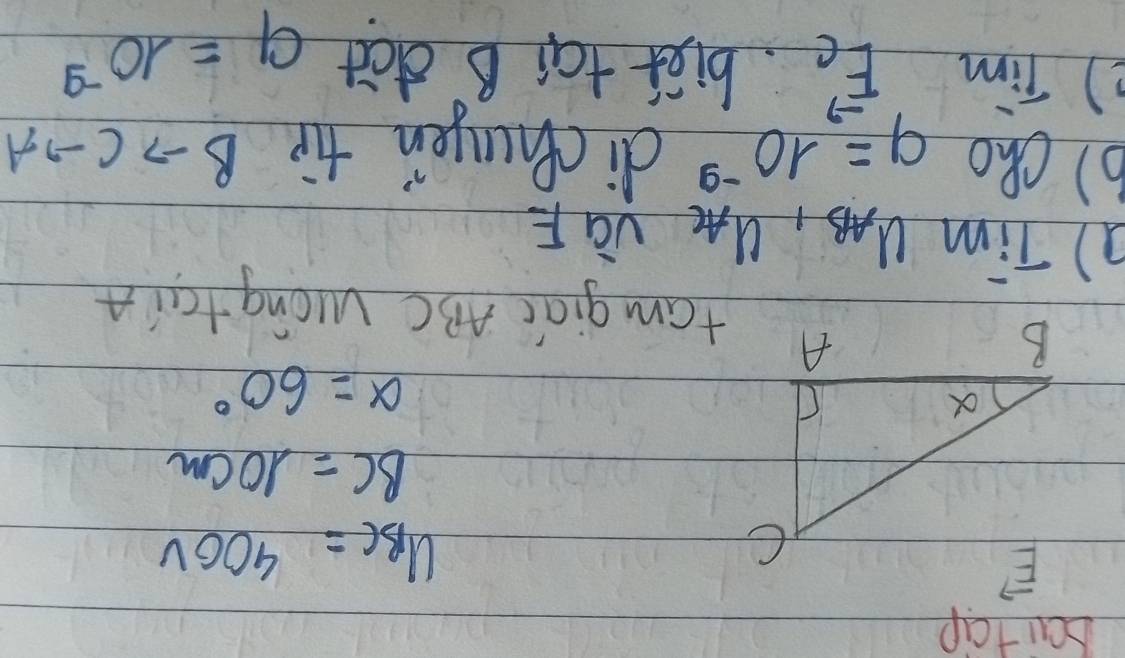 Bài tập
E→
C U_BC = 400V
BC = 10cm
α α = 60°
B A tam giác ABC vuông tại A
a) Tìm U_AB, U_AC và E
b) Cho q = 10⁻⁹ di chuyển từ B → C → A
c) Tìm E→_C. biết tại B đặt q = 10⁻⁹